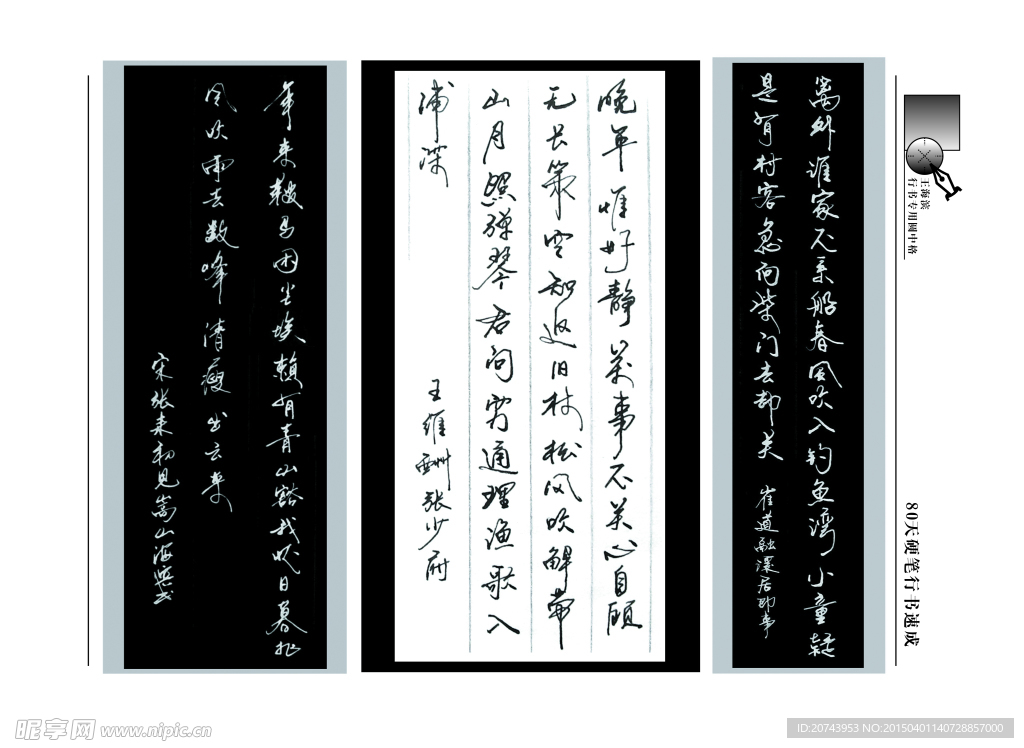 篱外谁家不系船春风吹入钓鱼湾小童疑
是有村客急向柴门去却关
崔道融溪居即事
晚年惟好静萬事不关心自顾
无长策空知返旧林松风吹解带
山月照弹琴君问穷通理渔歌入
浦深
王维酬张少府
年来鞍马困尘埃赖有青山豁我怀日暮北
风吹雨去数峰清瘦出云来
宋张耒初见嵩山海滨书
王海滨
行书专用圆中格
80天硬笔行书速成
昵享网 www.nipic.cn
ID:20743953 NO:20150401140728857000